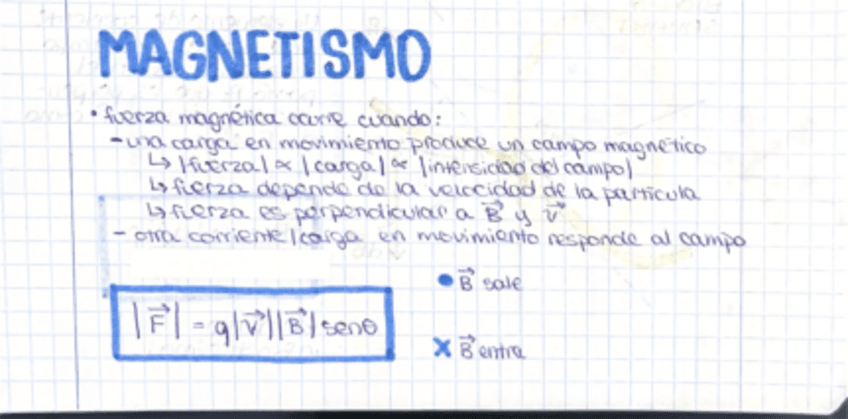 MAGNETISMO
• fuerza magnética ocurre cuando:
- una carga en movimiento produce un campo magnético
↳ |fuerza| ∝ |carga| ∝ |intensidad del campo|
↳ fuerza depende de la velocidad de la partícula
↳ fuerza es perpendicular a B⃗ y v⃗
- otra corriente/carga en movimiento responde al campo
• B⃗ sale
|F⃗| = q|v⃗||B⃗| senθ
x B⃗ entra